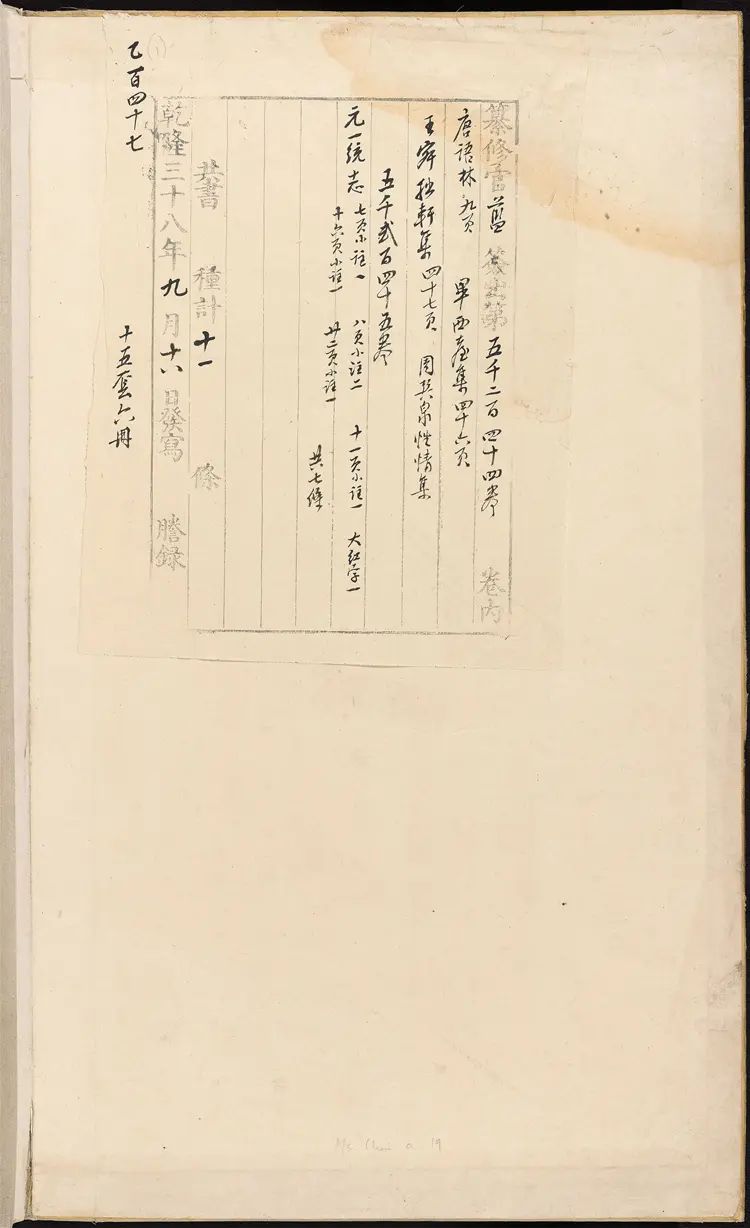 纂修官 藍 簽出第 五千二百四十四卷 卷內
唐語林 九頁 畢西臺集 四十六頁
王寗 軒集 四十七頁 周異泉性情集
五千貳百四十五卷
元一統志 七頁小注一 八頁小注二 十一頁小注一 大紅字一
十六頁小注一 廿二頁小注一
共七條
共書 種計 十一 條
乾隆三十八年 九 月 十六 日發寫 謄錄
十五套六冊
乙百四十七
(1)
Ms Chin a 19